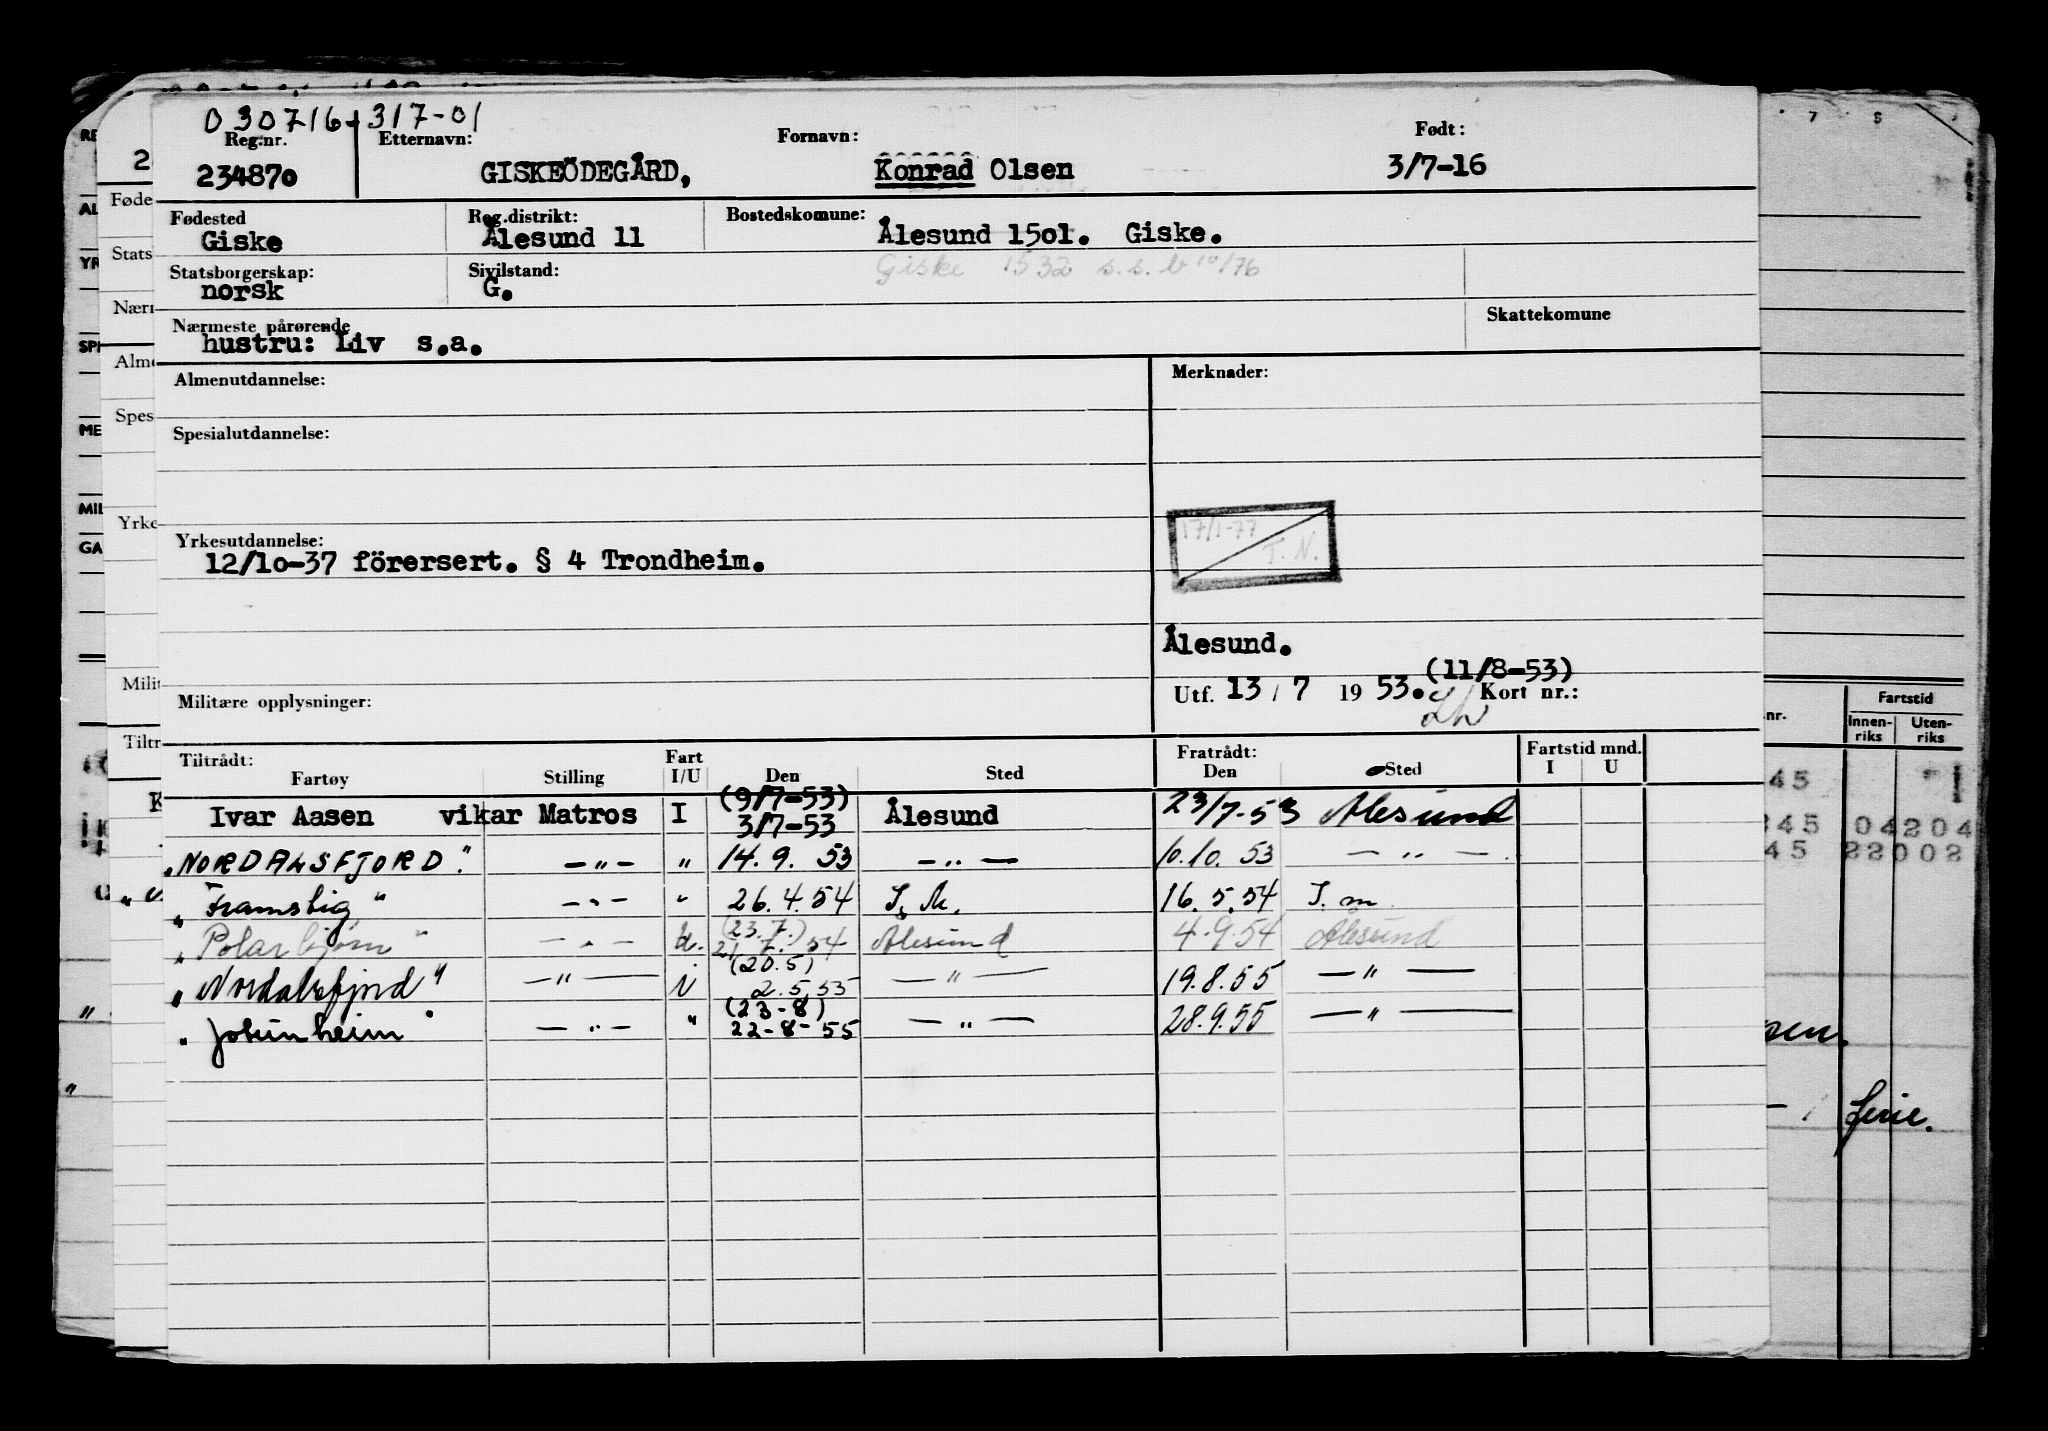 030716-317-01
Reg.nr. Etternavn: Fornavn: Født:
234870 GISKEÖDEGÅRD, Konrad Olsen 3/7-16
Fødested Reg.distrikt: Bostedskomune:
Giske Ålesund 11 Ålesund 1501. Giske.
Giske 1532 s.s.b 10/76
Statsborgerskap: Sivilstand:
norsk G.
Nærmeste pårørende Skattekomune
hustru: Liv s.a.
Almenutdannelse: Merknader:
Spesialutdannelse:
17/1-77
T. N.
Yrkesutdannelse:
12/10-37 förersert. § 4 Trondheim.
Ålesund.
(11/8-53)
Militære opplysninger: Utf. 13/7 1953. Kort nr.:
Tiltrådt: Fart Fratrådt: Fartstid mnd.
Fartøy Stilling I/U Den Sted Den Sted I U
(9/7-53)
Ivar Aasen vikar Matros I 3/7-53 Ålesund 23/7-53 Ålesund
"NORDALSFJORD" —"— " 14.9.53 —"— 10.10.53 —"—
"Framstig" —"— " 26.4.54 16.5.54
(23.7.)
"Polarbjørn" —"— U. 21.7.54 Ålesund 4.9.54 Ålesund
(20.5)
"Nordalsfjord" —"— i 2.5.55 —"— 19.8.55 —"—
(23-8)
"Jotunheim" —"— " 22-8-55 —"— 28.9.55 —"—
Føde
Stats
Nærn
Alme
Spes
Yrke
Milit
Tiltr
RE
AL
YR
SPI
ME
MIL
GA
7 8
nr. Fartstid
Innen-riks Uten-riks
45
345 04204
45 22002
ferie.